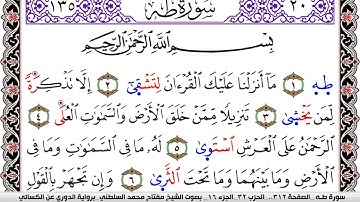 ١٣٥ سُورَةُ طه ٢٠
بِسْمِ اللَّهِ الرَّحْمَٰنِ الرَّحِيمِ
طه ١ مَا أَنزَلْنَا عَلَيْكَ الْقُرْءَانَ لِتَشْقَىٰ ٢ إِلَّا تَذْكِرَةً
لِّمَن يَخْشَىٰ ٣ تَنزِيلًا مِّمَّنْ خَلَقَ الْأَرْضَ وَالسَّمَٰوَٰتِ الْعُلَى ٤
الرَّحْمَٰنُ عَلَى الْعَرْشِ اسْتَوَىٰ ٥ لَهُ مَا فِي السَّمَٰوَٰتِ وَمَا فِي
الْأَرْضِ وَمَا بَيْنَهُمَا وَمَا تَحْتَ الثَّرَىٰ ٦ وَإِن تَجْهَرْ بِالْقَوْلِ
سورة طـه .. الصفحة ٣١٢.. الحزب ٣٢.. الجزء ١٦.. بصوت الشيخ مفتاح محمد السلطني.. برواية الدوري عن الكسائي